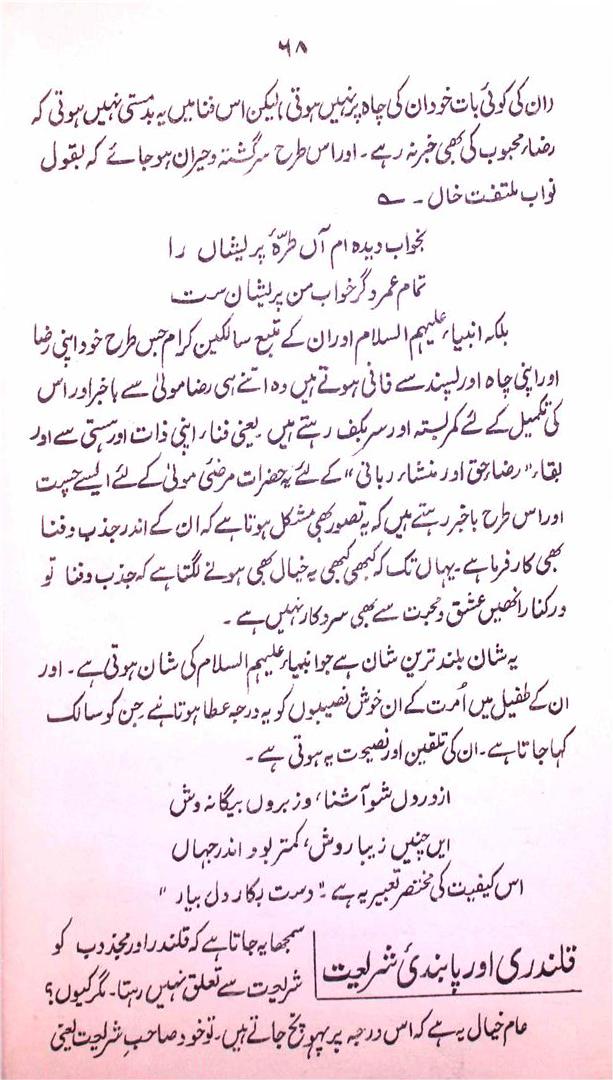 ۶۸
دان کی کوئی بات خود ان کی چاہ پر نہیں ہوتی، لیکن اس فنا میں یہ بدمستی نہیں ہوتی کہ
رضاء محبوب کی بھی خبر نہ رہے۔ اور اس طرح سرگشتہ وحیران ہوجائے کہ بقول
نواب ملتفت خاں۔ ؎
بخواب دیدہ ام آں طرّۂ پریشاں را
تمام عمر دگر خواب من پریشان ست
بلکہ انبیاء علیہم السلام اور ان کے متبع سالکین کرام جس طرح خود اپنی رضا
اور اپنی چاہ اور پسند سے فانی ہوتے ہیں وہ اتنے ہی رضا مولیٰ سے باخبر اور اس
کی تکمیل کے لئے کمربستہ اور سربکف رہتے ہیں یعنی فناء اپنی ذات اور ہستی سے اور
بقاء "رضاء حق اور منشاء ربانی" کے لئے یہ حضرات مرضئ مولیٰ کے لئے ایسے چست
اور اس طرح باخبر رہتے ہیں کہ یہ تصور بھی مشکل ہوتا ہے کہ ان کے اندر جذب و فنا
بھی کارفرما ہے۔ یہاں تک کہ کبھی کبھی یہ خیال بھی ہونے لگتا ہے کہ جذب و فنا تو
درکنار انھیں عشق و محبت سے بھی سروکار نہیں ہے۔
یہ شان بلند ترین شان ہے جو انبیاء علیہم السلام کی شان ہوتی ہے۔ اور
ان کے طفیل میں اُمت کے ان خوش نصیبوں کو یہ درجہ عطا ہوتا ہے جن کو سالک
کہا جاتا ہے۔ ان کی تلقین اور نصیحت یہ ہوتی ہے۔
از دردل شو آشنا، وز بروں بیگانہ وش
ایں چنیں زیبا روش، کمتر بود اندر جہاں
اس کیفیت کی مختصر تعبیر یہ ہے۔ "دست بکار دل بیار"
قلندری اور پابندئ شریعت
سمجھا یہ جاتا ہے کہ قلندر اور مجذوب کو
شریعت سے تعلق نہیں رہتا۔ مگر کیوں؟
عام خیال یہ ہے کہ اس درجہ پر پہونچ جاتے ہیں۔ تو خود صاحبِ شریعت یعنی